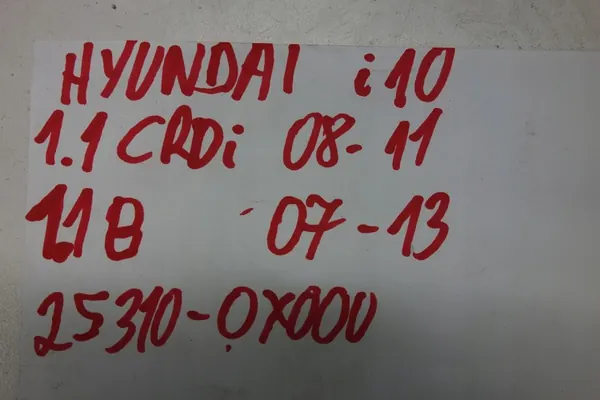 HYUNDAI i10
1.1 CRDi 08-11
1.1 B 07-13
25310-0X000